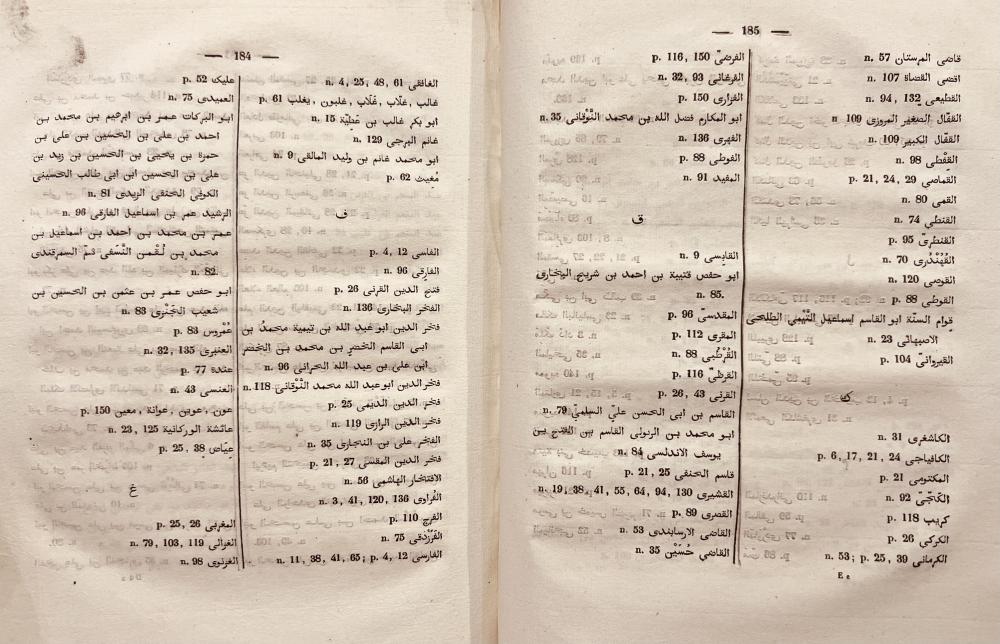 — 184 —
عليك p. 52
العميدى n. 75
ابو البركات عمر بن ابرهيم بن محمد بن
احمد بن على بن الحسين بن على بن
حمزة بن يحيى بن الحسين بن زيد بن
على بن الحسين ابن ابى طالب الحسينى
الكوفى الحنفى الزيدى n. 81
الرشيد عمر بن اسماعيل الفارقى n. 96
عمر بن محمد بن احمد بن اسماعيل بن
محمد بن لُقْمن النَّسَفى ثمّ السمرقندى
n. 82.
ابو حفص عمر بن عثمن بن الحسين بن
شعيب الجَنْزى n. 83
عُمْروس p. 83
العنبرى n. 32, 135
عندة p. 77
العنسى n. 43
عون, عوين, عوانة, معين p. 150
عائشة الوركانية n. 23, 125
عيّاض p. 25, 38
غ
المغربى p. 25, 26
الغزالى n. 79, 103, 119
الغزنوى n. 98
D d 2
الغافقى n. 4, 25, 48, 61
غالب, غلّاب, غَلَاب, غلبون, يغلب p. 61
ابو بكر غالب بن عَطيّة n. 15
غانم البرجى n. 129
ابو محمد غانم بن وليد المالقى n. 9
مُغيث p. 62
ف
الفاسى p. 4, 12
الفارقى n. 96
فتح الدين القرنى p. 26
الفخر البخارى n. 136
فخر الدين ابو عبد الله بن تيمية محمد بن
ابى القاسم الخضر بن محمد بن الخضر
ابن على بن عبد الله الحرانى n. 96
فخر الدين ابو عبد الله محمد النُّوقانى n. 118
فخر الدين الديمى p. 25
فخر الدين الرازى n. 119
الفخر على بن النجارى n. 35
فخر الدين المقسى p. 21, 27
الافتخار الهاشمى n. 56
الفُراوى n. 3, 41, 120, 136
الفرج p. 110
الفَرَزْدقى n. 75
الفارسى n. 11, 38, 41, 65; p. 4, 12
— 185 —
الفرضىّ p. 116, 150
الفرغانى n. 32, 93
الفزارى p. 150
ابو المكارم فضل الله بن محمد النُّوقانى n. 35
الفهرى n. 136
الفوطى p. 88
المفيد n. 91
ق
القابسى n. 9
ابو حفص قتيبة بن احمد بن شريح البخارى
n. 85.
المقدسىّ p. 96
المقرى p. 112
القُرْطُبى n. 88
القرظىّ p. 116
القرنى p. 26, 43
القاسم بن ابى الحسن علىّ السلمىّ n. 79
ابو محمد بن الزنولى القاسم بن الفتح بن
يوسف الاندلسى n. 84
قاسم الحنفى p. 21, 25
القشيرى n. 19, 38, 41, 55, 64, 94, 130
القصرى p. 89
القاضى الارسابندى n. 53
القاضى حُسَيْن n. 35
قاضى المرستان n. 57
اقضى القضاة n. 107
القطيعى n. 94, 132
القفّال الصغير المروزى n. 109
القفّال الكبير n. 109
القِفْطى n. 98
القماصى p. 21, 24, 29
القمى n. 80
القنطى n. 74
القنطرىّ p. 95
القُهُنْدُزى n. 70
القوصى n. 120
القوطى p. 88
قوام السنّة ابو القاسم اسماعيل التَّيْمى الطلحى
الاصبهانى n. 23
القيروانىّ p. 104
ك
الكاشغرى n. 31
الكافياجى p. 6, 17, 21, 24
المكتومى p. 21
الكَجّىّ n. 92
كريب p. 118
الكركى p. 26
الكرمانى n. 53; p. 25, 39
E e